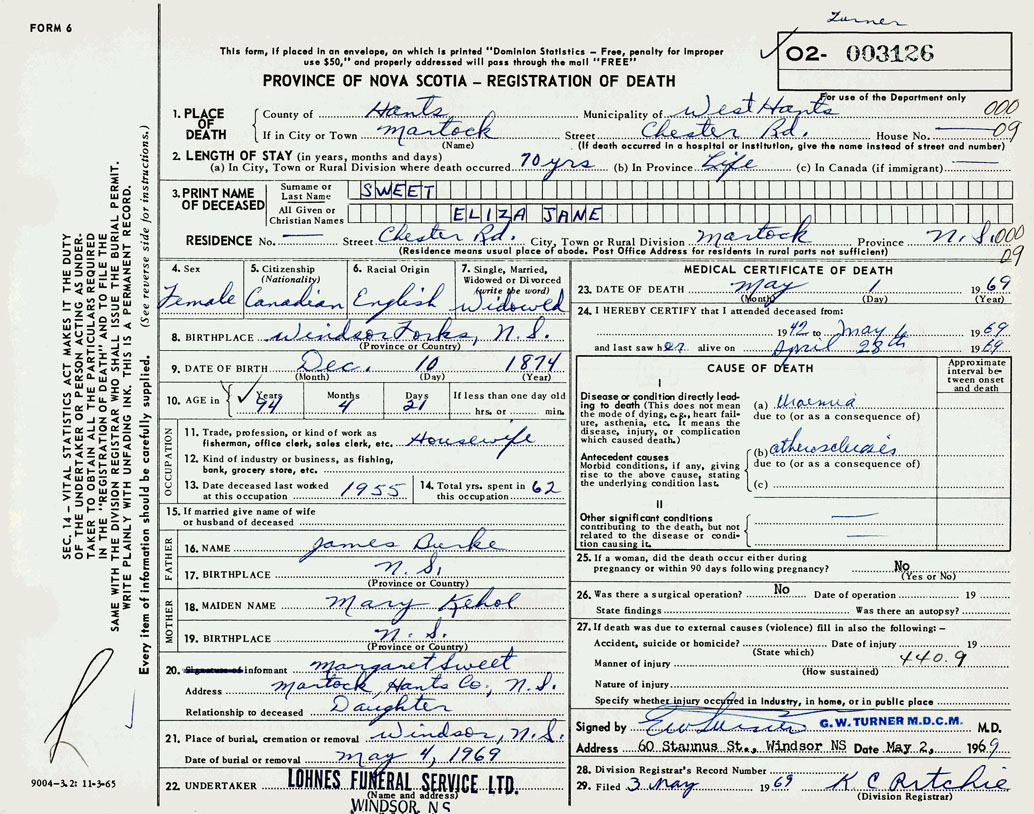 FORM 6
Turner
✓ O2- 003126
This form, if placed in an envelope, on which is printed "Dominion Statistics – Free, penalty for improper
use $50," and properly addressed will pass through the mail "FREE"
PROVINCE OF NOVA SCOTIA – REGISTRATION OF DEATH
For use of the Department only
1. PLACE OF DEATH
County of Hants Municipality of West Hants 000
If in City or Town Martock Street Chester Rd. House No. — 09
(Name) (If death occurred in a hospital or institution, give the name instead of street and number)
2. LENGTH OF STAY (in years, months and days)
(a) In City, Town or Rural Division where death occurred 70 yrs (b) In Province Life (c) In Canada (if immigrant) —
3. PRINT NAME OF DECEASED
Surname or Last Name SWEET
All Given or Christian Names ELIZA JANE
RESIDENCE No. — Street Chester Rd. City, Town or Rural Division Martock Province N.S. 000
(Residence means usual place of abode. Post Office Address for residents in rural parts not sufficient) 09
4. Sex Female
5. Citizenship (Nationality) Canadian
6. Racial Origin English
7. Single, Married, Widowed or Divorced (write the word) Widowed
8. BIRTHPLACE Windsor Forks, N.S.
(Province or Country)
9. DATE OF BIRTH Dec. 10 1874
(Month) (Day) (Year)
10. AGE in ✓ Years 94 Months 4 Days 21 If less than one day old hrs. or min.
OCCUPATION
11. Trade, profession, or kind of work as fisherman, office clerk, sales clerk, etc. Housewife
12. Kind of industry or business, as fishing, bank, grocery store, etc.
13. Date deceased last worked at this occupation 1955
14. Total yrs. spent in this occupation 62
15. If married give name of wife or husband of deceased
FATHER
16. NAME James Burke
17. BIRTHPLACE N.S.
(Province or Country)
MOTHER
18. MAIDEN NAME Mary Kehol
19. BIRTHPLACE N.S.
(Province or Country)
20. Signature of informant Margaret Sweet
Address Martock, Hants Co., N.S.
Relationship to deceased Daughter
21. Place of burial, cremation or removal Windsor, N.S.
Date of burial or removal May 4, 1969
22. UNDERTAKER LOHNES FUNERAL SERVICE LTD.
(Name and address)
WINDSOR, N.S.
MEDICAL CERTIFICATE OF DEATH
23. DATE OF DEATH May 1 1969
(Month) (Day) (Year)
24. I HEREBY CERTIFY that I attended deceased from:
1942 to May 1 1969
and last saw her alive on April 28th 1969
CAUSE OF DEATH
Approximate interval between onset and death
I
Disease or condition directly leading to death (This does not mean the mode of dying, e.g., heart failure, asthenia, etc. It means the disease, injury, or complication which caused death.)
(a) Uraemia
due to (or as a consequence of)
Antecedent causes
Morbid conditions, if any, giving rise to the above cause, stating the underlying condition last.
(b) atherosclerosis
due to (or as a consequence of)
(c)
II
Other significant conditions contributing to the death, but not related to the disease or condition causing it.
25. If a woman, did the death occur either during pregnancy or within 90 days following pregnancy? No
(Yes or No)
26. Was there a surgical operation? No Date of operation 19
State findings Was there an autopsy?
27. If death was due to external causes (violence) fill in also the following: –
Accident, suicide or homicide? Date of injury 19
(State which)
Manner of injury 440.9
(How sustained)
Nature of injury
Specify whether injury occurred in Industry, in home, or in public place
Signed by G.W. TURNER M.D.C.M. M.D.
Address 60 Stannus St., Windsor NS Date May 2, 1969
28. Division Registrar's Record Number
29. Filed 3 May 1969 K C Ritchie
(Division Registrar)
SEC. 14 – VITAL STATISTICS ACT MAKES IT THE DUTY
OF THE UNDERTAKER OR PERSON ACTING AS UNDER-
TAKER TO OBTAIN ALL THE PARTICULARS REQUIRED
IN THE "REGISTRATION OF DEATH" AND TO FILE THE
SAME WITH THE DIVISION REGISTRAR WHO SHALL ISSUE THE BURIAL PERMIT.
WRITE PLAINLY WITH UNFADING INK. THIS IS A PERMANENT RECORD.
Every item of information should be carefully supplied. (See reverse side for instructions.)
9004-3.2: 11-3-65